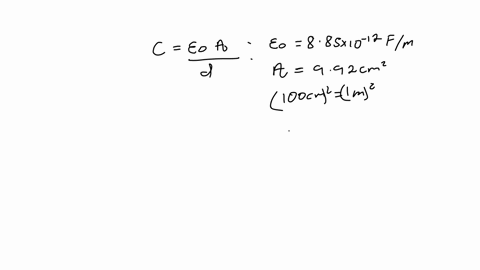 C = ε₀ A₀ / d : ε₀ = 8.85x10⁻¹² F/m
A = 9.92cm²
(100cm)²=(1m)²